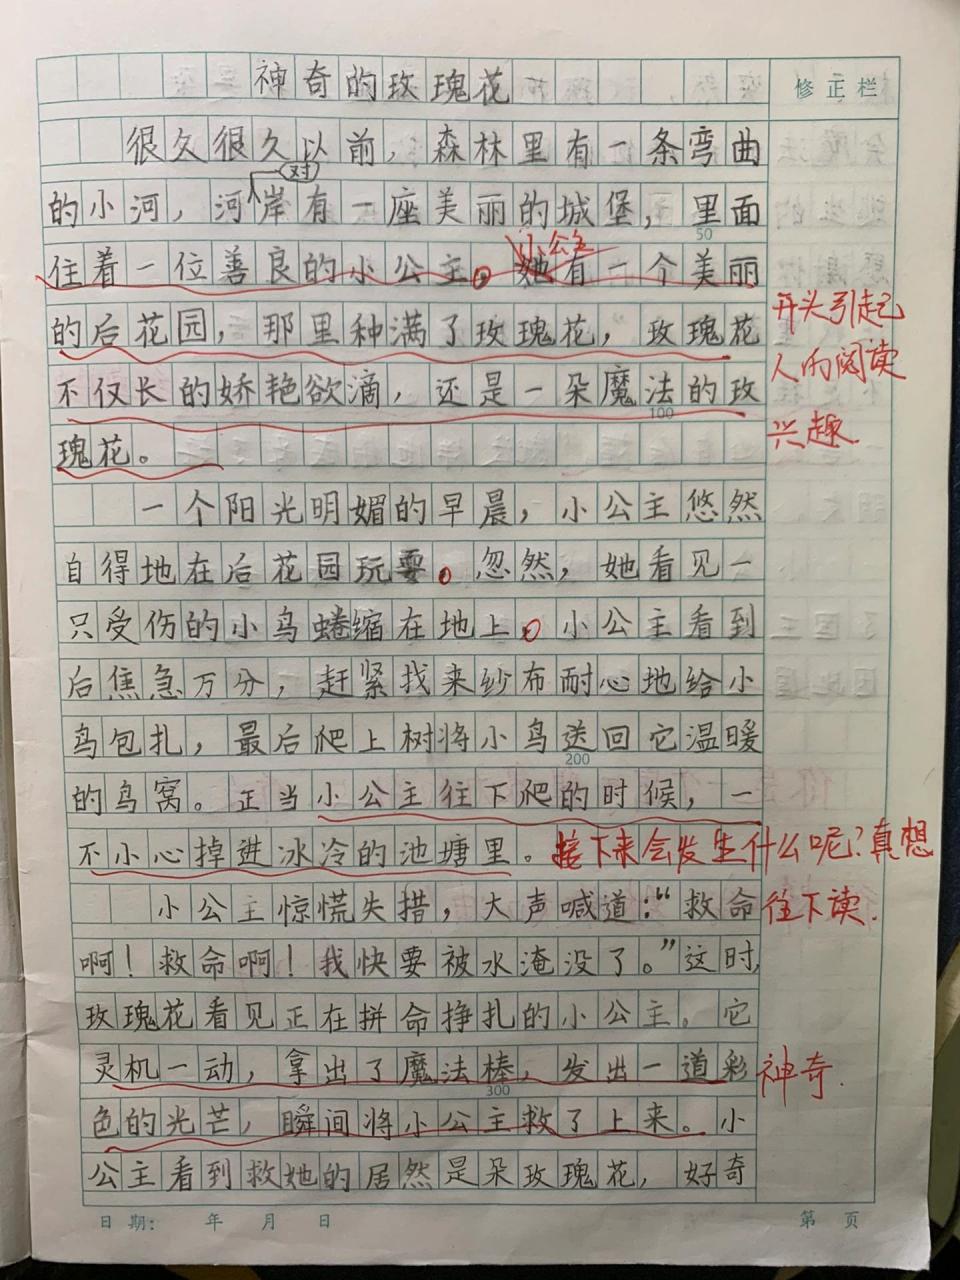 神奇的玫瑰花
修正栏
很久很久以前，森林里有一条弯曲
对
的小河，河岸有一座美丽的城堡，里面
50
小公主
住着一位善良的小公主。她有一个美丽
的后花园，那里种满了玫瑰花，玫瑰花
开头引起
人的阅读
兴趣.
不仅长的娇艳欲滴，还是一朵魔法的玫
100
瑰花。
一个阳光明媚的早晨，小公主悠然
自得地在后花园玩耍。忽然，她看见一
只受伤的小鸟蜷缩在地上。小公主看到
后焦急万分，赶紧找来纱布耐心地给小
鸟包扎，最后爬上树将小鸟送回它温暖
200
的鸟窝。正当小公主往下爬的时候，一
不小心掉进冰冷的池塘里。
接下来会发生什么呢？真想
往下读.
小公主惊慌失措，大声喊道：“救命
啊！救命啊！我快要被水淹没了。”这时，
玫瑰花看见正在拼命挣扎的小公主。它
灵机一动，拿出了魔法棒，发出一道彩
神奇.
300
色的光芒，瞬间将小公主救了上来。小
公主看到救她的居然是朵玫瑰花，好奇
日期： 年 月 日
第 页